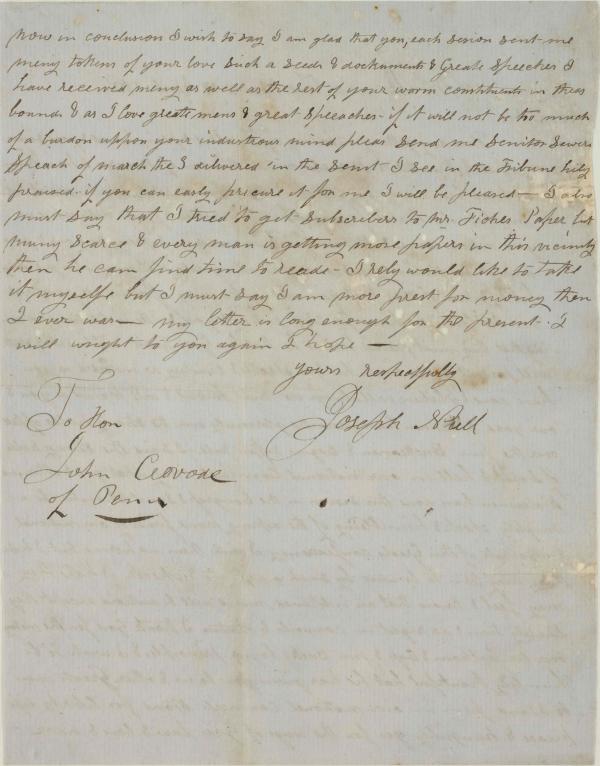 now in conclusion I wish to say I am glad that you, each sesion sent me
meny tokens of your love such a seeds & dockuments & Greate Speeches I
have received meny as well as the rest of your worm constituents in theas
bounds & as I love greate mens & great Speeaches - if it will not be too much
of a burdon uppon your industrious mind pleas send me Senitor
Speach of march the 3 dilivered in the Senit I see in the Tribune hily
praised - if you can easly procure it for me I will be pleased — I also
must say that I tried to get subscribers to Mr. Paper but
muny scarce & every man is getting more papers in this vicinity
then he can find time to reade - I rely would like to take
it myselfe but I must say I am more prest for money then
I ever was — my letter is long enough for the present - I
will wright to you again I hope —
yours respectfully
Joseph
To Hon
John Covode
of Penn